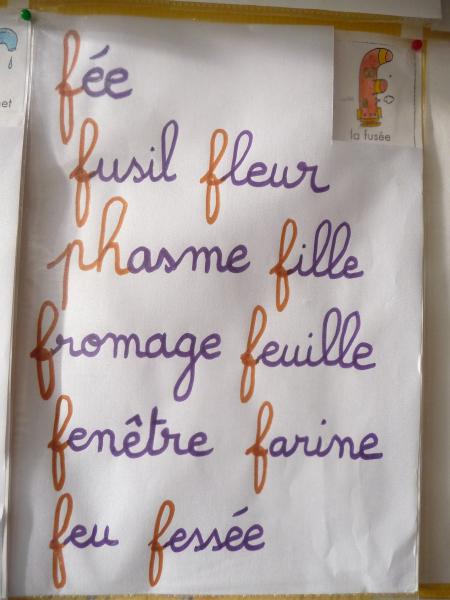 fée
la fusée
fusil fleur
phasme fille
fromage feuille
fenêtre farine
feu fessée